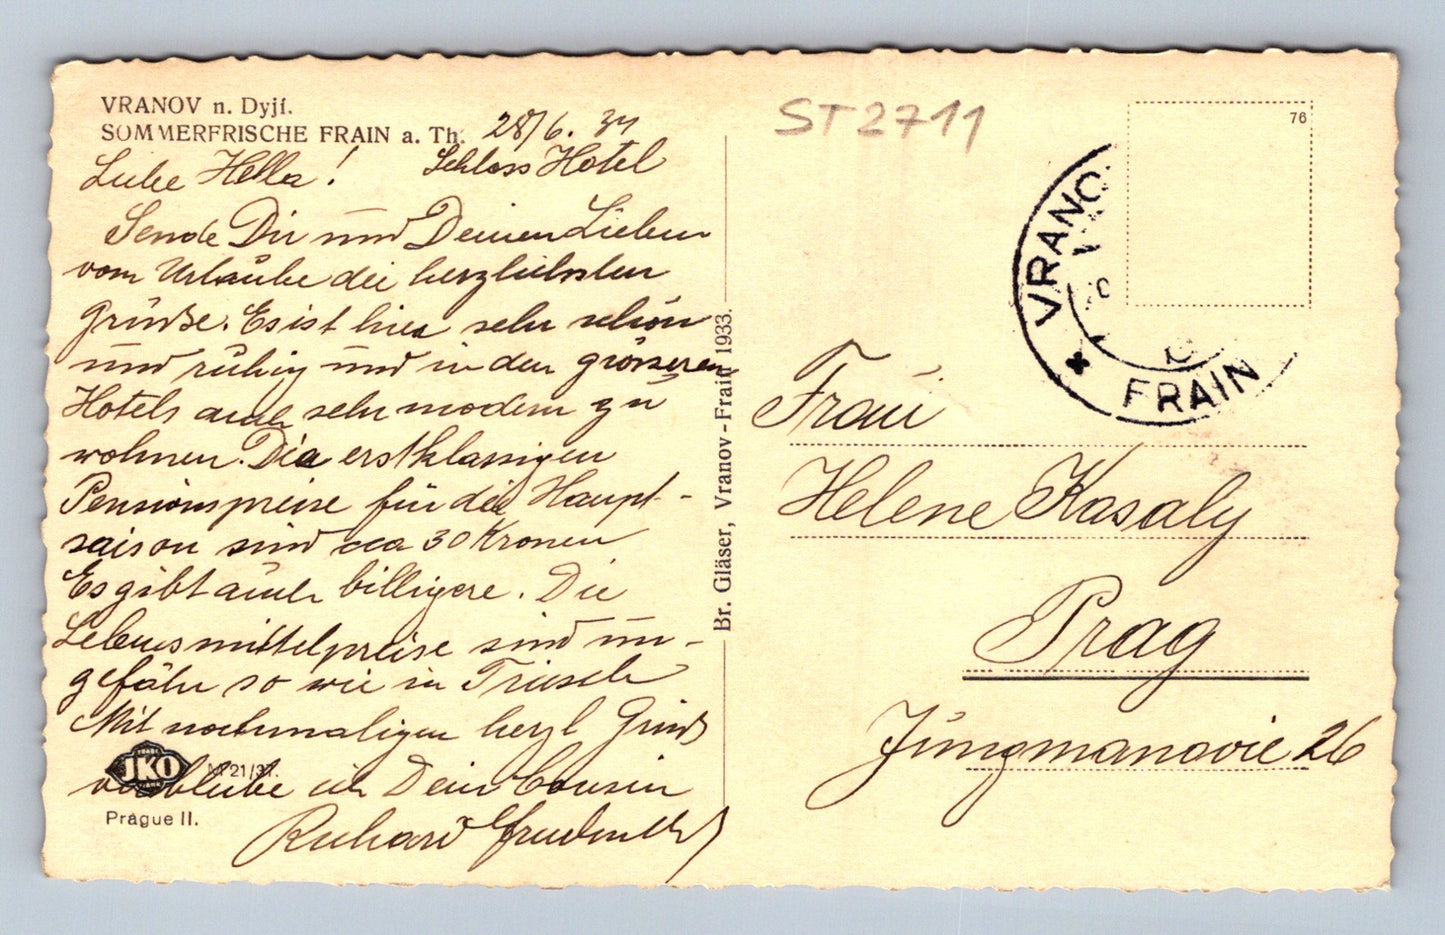 VRANOV n. Dyjí.
SOMMERFRISCHE FRAIN a. Th.
28/6. 34
Liebe Hella! Schloss Hotel
Sende Dir und Deinen Lieben
vom Urlaube die herzlichsten
Grüße. Es ist hier sehr schön
und ruhig und in den grösseren
Hotels auch sehr modern zu
wohnen. Die erstklassigen
Pensionspreise für die Haupt-
saison sind cca 30 Kronen
Es gibt auch billigere. Die
Lebensmittelpreise sind un-
gefähr so wie in Triesch
Mit nochmaligen herzl Gruß
verbleibe ich Dein Cousin
Richard
JKO
Nº 21/37.
Prague II.
Br. Gläser, Vranov-Frain 1933.
ST2711
76
VRANO
FRAIN
Frau
Helene Kasaly
Prag
Jungmanovic 26